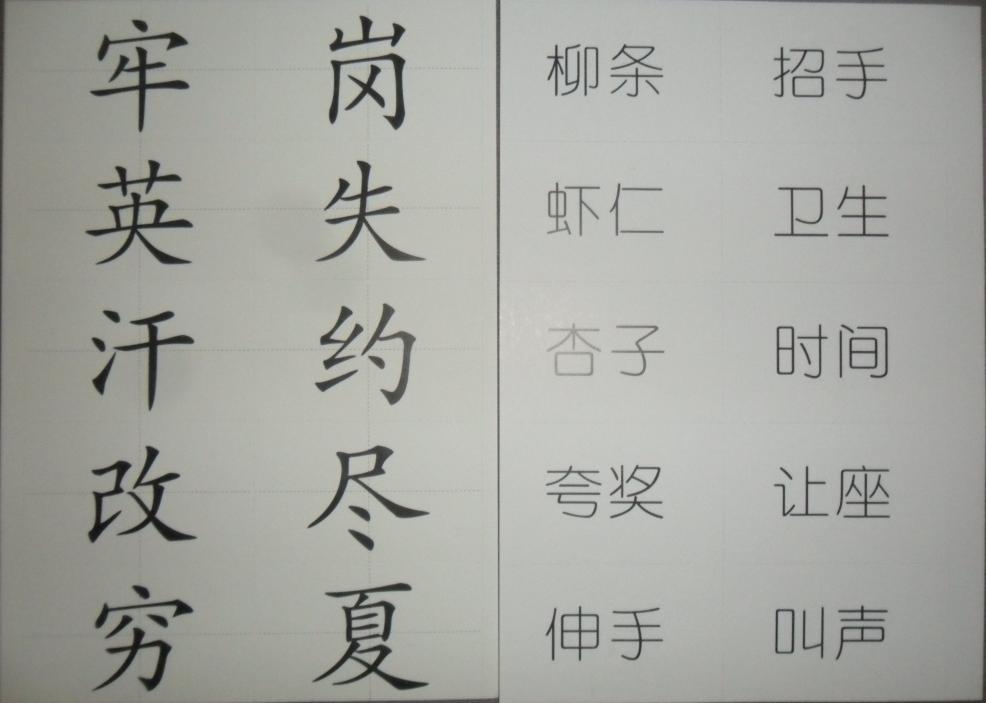 牢 岗
英 失
汗 约
改 尽
穷 夏
柳条 招手
虾仁 卫生
杏子 时间
夸奖 让座
伸手 叫声